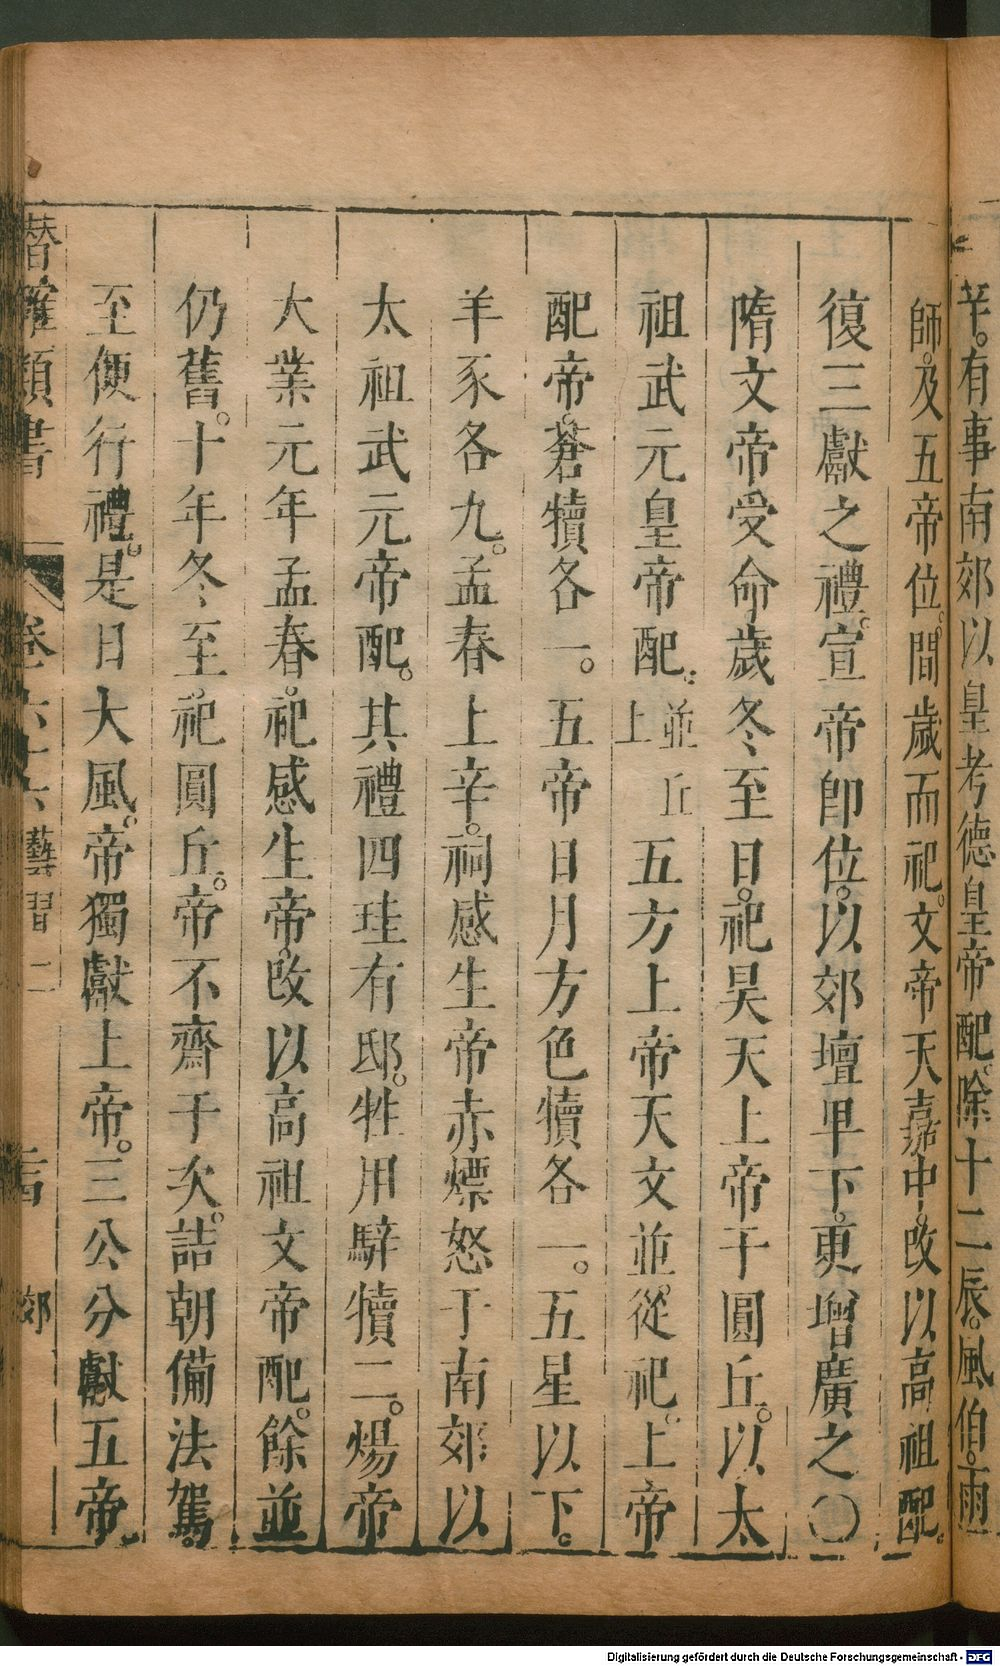 羊。有事南郊以皇考德皇帝配。除十二辰。風伯。雨
師。及五帝位。間歲而祀。文帝天嘉中。改以高祖配。
復三獻之禮。宣帝卽位。以郊壇卑下。更增廣之〇
隋文帝受命歲冬至日。祀昊天上帝于圓丘。以太
祖武元皇帝配。並丘上五方上帝天文並從祀。上帝
配帝。蒼犢各一。五帝日月方色犢各一。五星以下。
羊豕各九。孟春上辛。祠感生帝赤熛怒于南郊。以
太祖武元帝配。其禮四珪有邸。牲用騂犢二。煬帝
大業元年孟春。祀感生帝。改以高祖文帝配。餘並
仍舊。十年冬至。祀圓丘。帝不齋于次。詰朝備法駕。
至便行禮。是日大風。帝獨獻上帝。三公分獻五帝
潛確類書 卷六十六 藝習二 郊
Digitalisierung gefördert durch die Deutsche Forschungsgemeinschaft - DFG